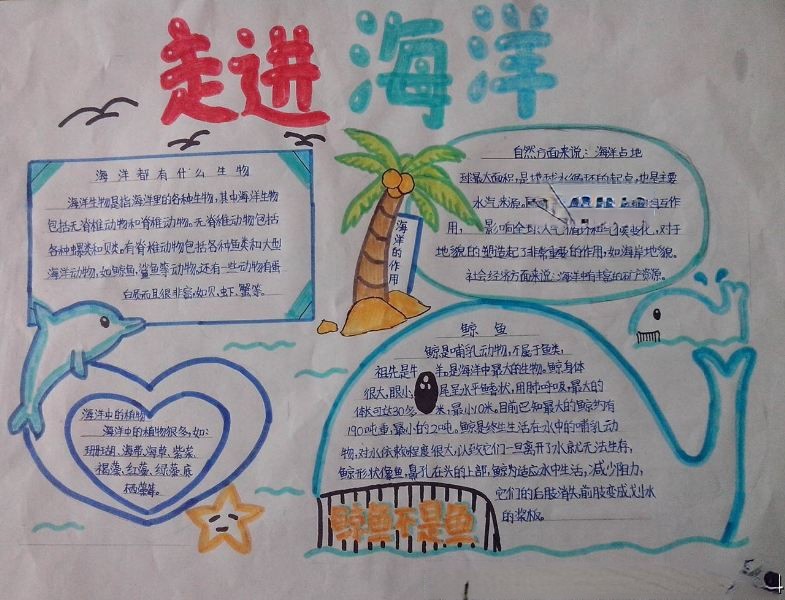 走进海洋
海洋都有什么生物
海洋生物是指海洋里的各种生物,其中海洋生物
包括无脊椎动物和脊椎动物。无脊椎动物包括
各种螺类和贝类。有脊椎动物包括各种鱼类和大型
海洋动物,如鲸鱼,鲨鱼等动物,还有一些动物有蛋
白质而且很非富,如贝、虾、蟹等。
海洋的作用
自然方面来说:海洋占地
球最大面积,是地球水循环的起点,也是主要
水汽来源,
用,影响全球大气循环和气候变化,对于
地貌的塑造起了非常重要的作用,如海岸地貌。
社会经济方面来说:海洋中有丰富的矿产资源。
海洋中的植物
海洋中的植物很多,如:
珊瑚、海带、海草、紫菜、
褐藻、红藻、绿藻、
硒藻等。
鲸鱼
鲸是哺乳动物,不属于鱼类,
祖先是牛羊。是海洋中最大的生物。鲸身体
很大,眼小,尾呈水平鳍状,用肺呼吸,最大的
体长可达30多米,最小10米,目前已知最大的鲸约有
190吨重,最小的2吨。鲸是终生生活在水中的哺乳动
物,对水依赖程度很大,以致它们一旦离开了水就无法生存,
鲸形状像鱼,鼻孔在头的上部,鲸为适应水中生活,减少阻力,
它们的后肢消失,前肢变成划水
的桨板。
鲸鱼不是鱼